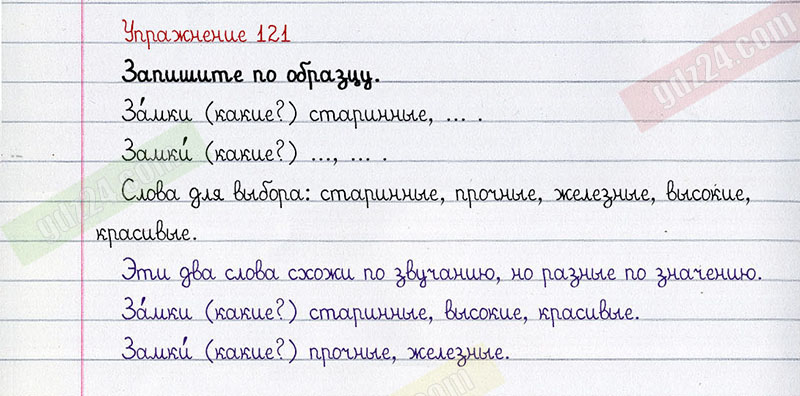 Упражнение 121
Запишите по образцу.
За́мки (какие?) старинные, ... .
Замки́ (какие?) ..., ... .
Слова для выбора: старинные, прочные, железные, высокие,
красивые.
Эти два слова схожи по звучанию, но разные по значению.
За́мки (какие?) старинные, высокие, красивые.
Замки́ (какие?) прочные, железные.
gdz24.com
gdz24.com
com